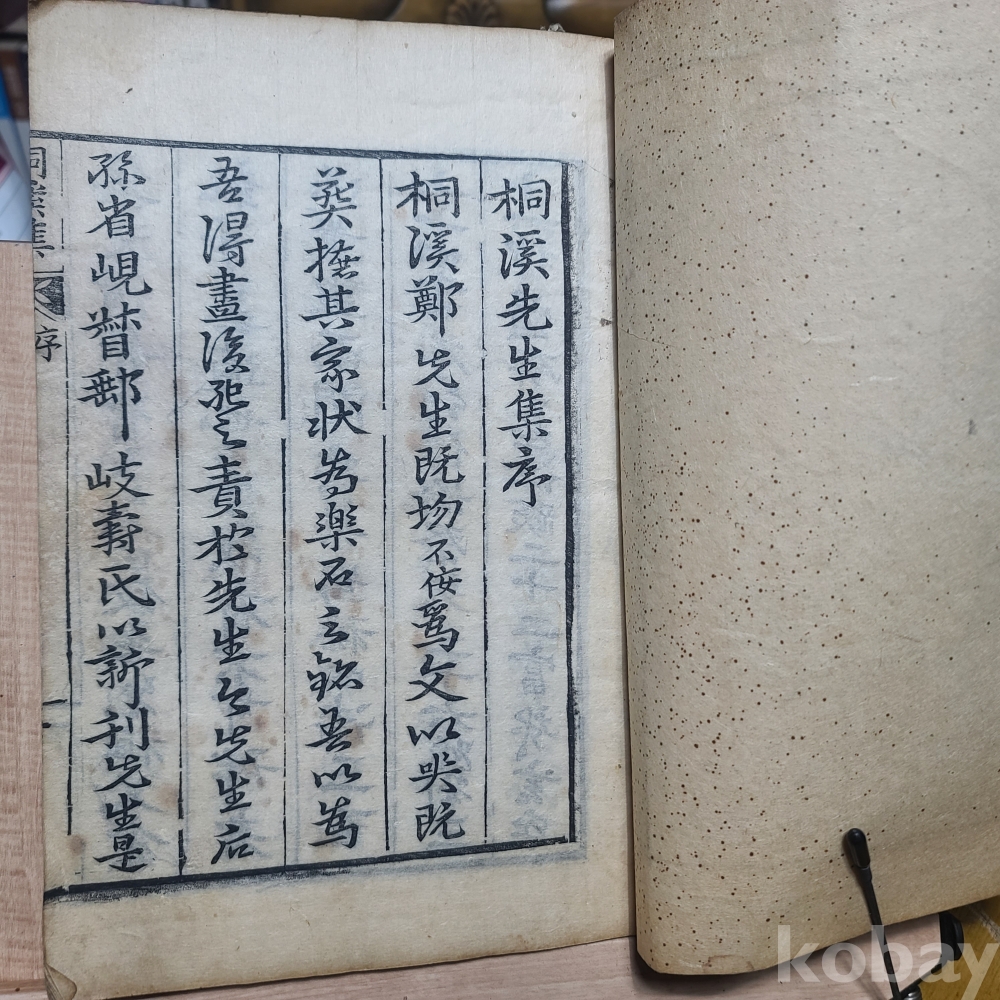 桐溪先生集序
桐溪鄭先生既圽不侫爲文以哭既
葬摭其家状為樂石之銘吾以為
吾得盡後死之責於先生今先生后
孫省峴督郵岐壽氏以新刊先生是
桐溪集 序 一
kobay